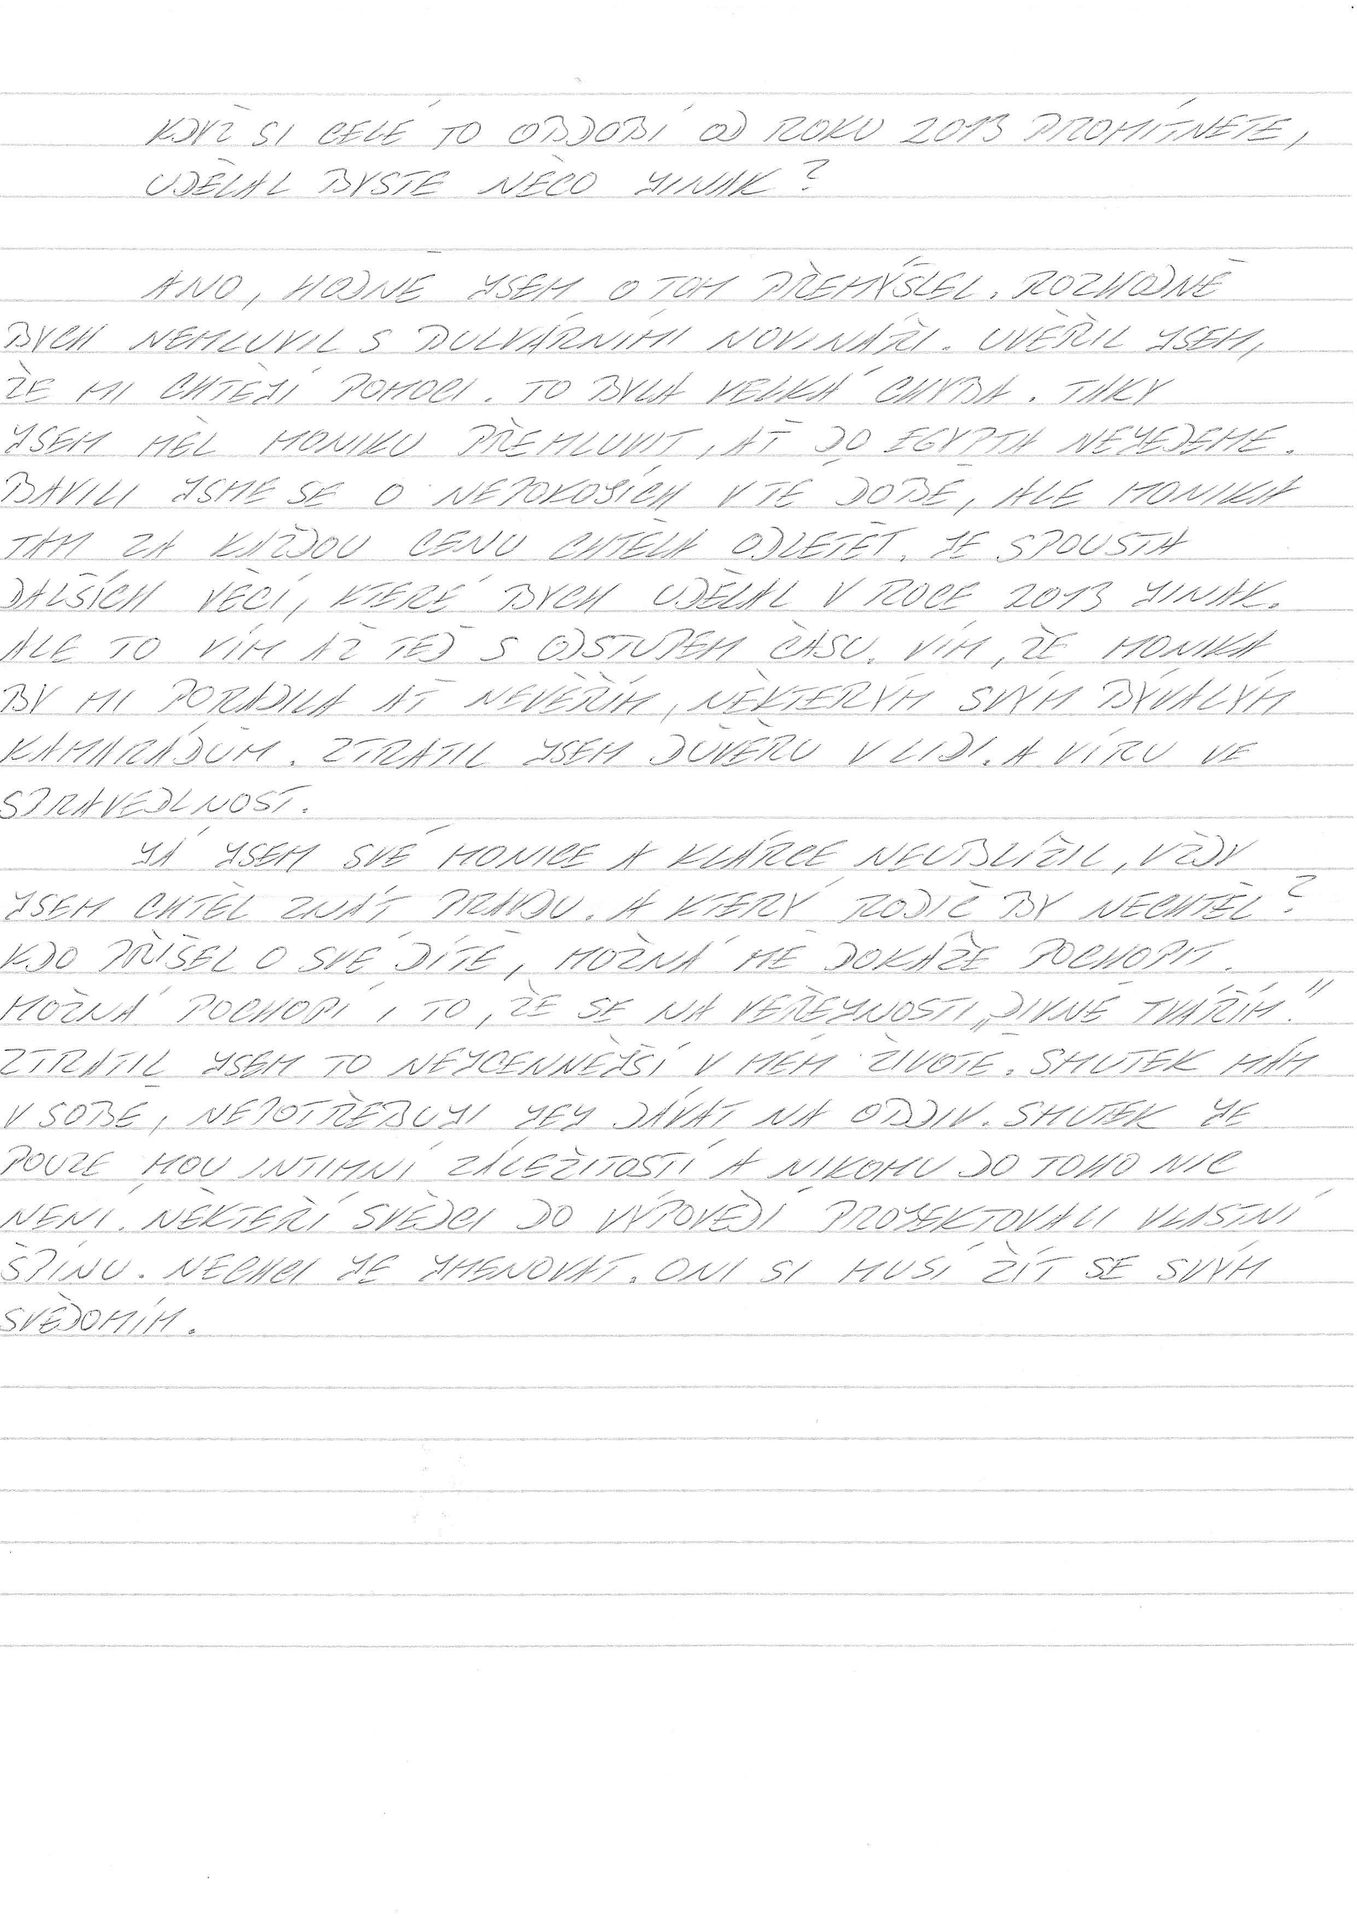 KDYŽ SI CELÉ TO OBDOBÍ OD ROKU 2013 PROMÍTNETE,
UDĚLAL BYSTE NĚCO JINAK?
ANO, HODNĚ JSEM O TOM PŘEMÝŠLEL. ROZHODNĚ
BYCH NEMLUVIL S BULVÁRNÍMI NOVINÁŘI. UVĚŘIL JSEM,
ŽE MI CHTĚJÍ POMOCI. TO BYLA VELKÁ CHYBA. TAKY
JSEM MĚL MONIKU PŘEMLUVIT, AŤ DO EGYPTA NEJEDEME.
BAVILI JSME SE O NEPOKOJÍCH V TÉ DOBĚ, ALE MONIKA
TAM ZA KAŽDOU CENU CHTĚLA ODLETĚT. JE SPOUSTA
DALŠÍCH VĚCÍ, KTERÉ BYCH UDĚLAL V ROCE 2013 JINAK.
ALE TO VÍM AŽ TEĎ S ODSTUPEM ČASU. VÍM, ŽE MONIKA
BY MI PORADILA AŤ NEVĚŘÍM, NĚKTERÝM SVÝM BÝVALÝM
KAMARÁDŮM. ZTRATIL JSEM DŮVĚRU V LIDI. A VÍRU VE
SPRAVEDLNOST.
JÁ JSEM SVÉ MONICE A KLÁRCE NEUBLÍŽIL, VŽDY
JSEM CHTĚL ZNÁT PRAVDU. A KTERÝ RODIČ BY NECHTĚL?
KDO PŘIŠEL O SVÉ DÍTĚ, MOŽNÁ MĚ DOKÁŽE POCHOPIT.
MOŽNÁ POCHOPÍ I TO, ŽE SE NA VEŘEJNOSTI „DIVNĚ TVÁŘÍM."
ZTRATIL JSEM TO NEJCENNĚJŠÍ V MÉM ŽIVOTĚ. SMUTEK MÁM
V SOBĚ, NEPOTŘEBUJI JEJ DÁVAT NA ODDIV. SMUTEK JE
POUZE MOU INTIMNÍ ZÁLEŽITOSTÍ A NIKOMU DO TOHO NIC
NENÍ. NĚKTEŘÍ SVĚDCI DO VÝPOVĚDÍ PROJEKTOVALI VLASTNÍ
ŠPÍNU. NECHCI JE JMENOVAT. ONI SI MUSÍ ŽÍT SE SVÝM
SVĚDOMÍM.